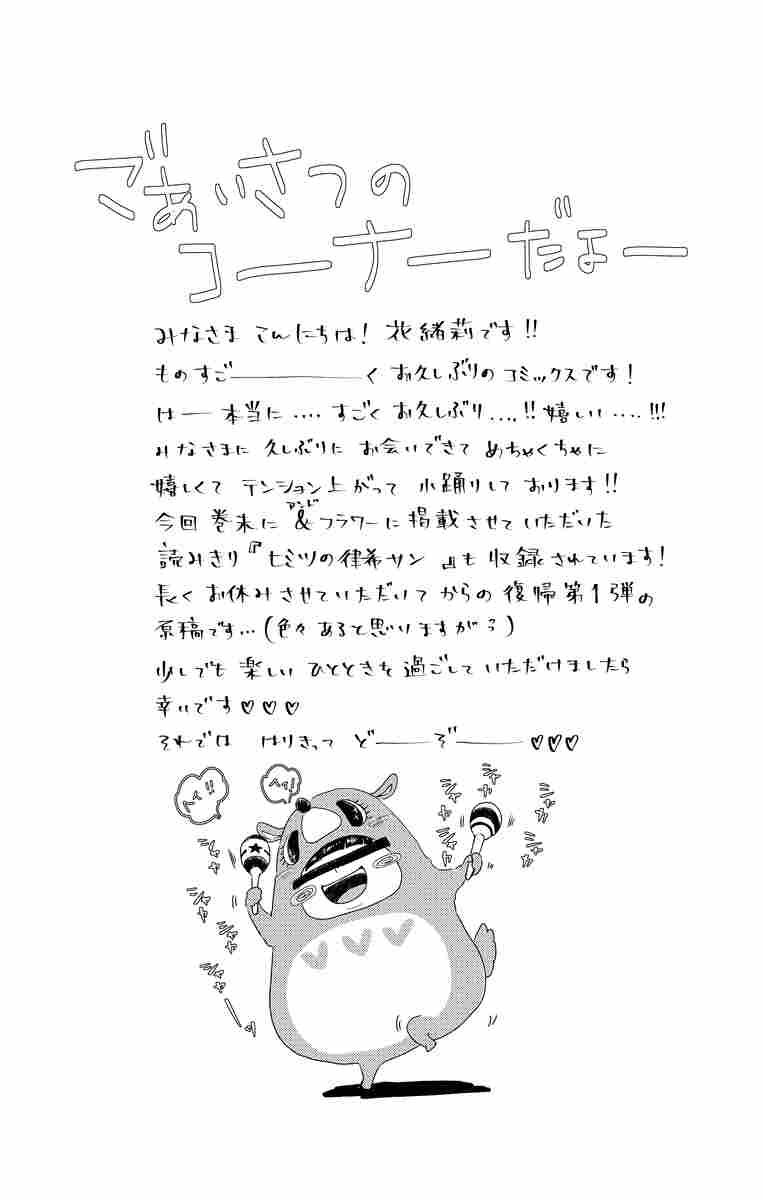 ごあいさつの
コーナーだよー
みなさま こんにちは! 花緒莉です!!
ものすご―――――く お久しぶりのコミックスです!
は―本当に‥‥すごく お久しぶり‥‥!!嬉しい‥‥!!!
みなさまに 久しぶりに お会いできて めちゃくちゃに
嬉しくて テンション上がって 小踊りしております!!
アンド
今回 巻末に &フラワーに掲載させていただいた
読みきり『ヒミツの律希サン』も 収録されています!
長く お休みさせていただいて からの 復帰第1弾の
原稿です…(色々あると思いますが?)
少しでも 楽しい ひとときを過ごして いただけましたら
幸いです♡♡♡
それでは はりきって ど――ぞ――♡♡♡
ヘイ!!
ヘイ!!
シャカ
シャカ
シャカ
シャカ
シャカ
シャカ
シャカ
シャカ